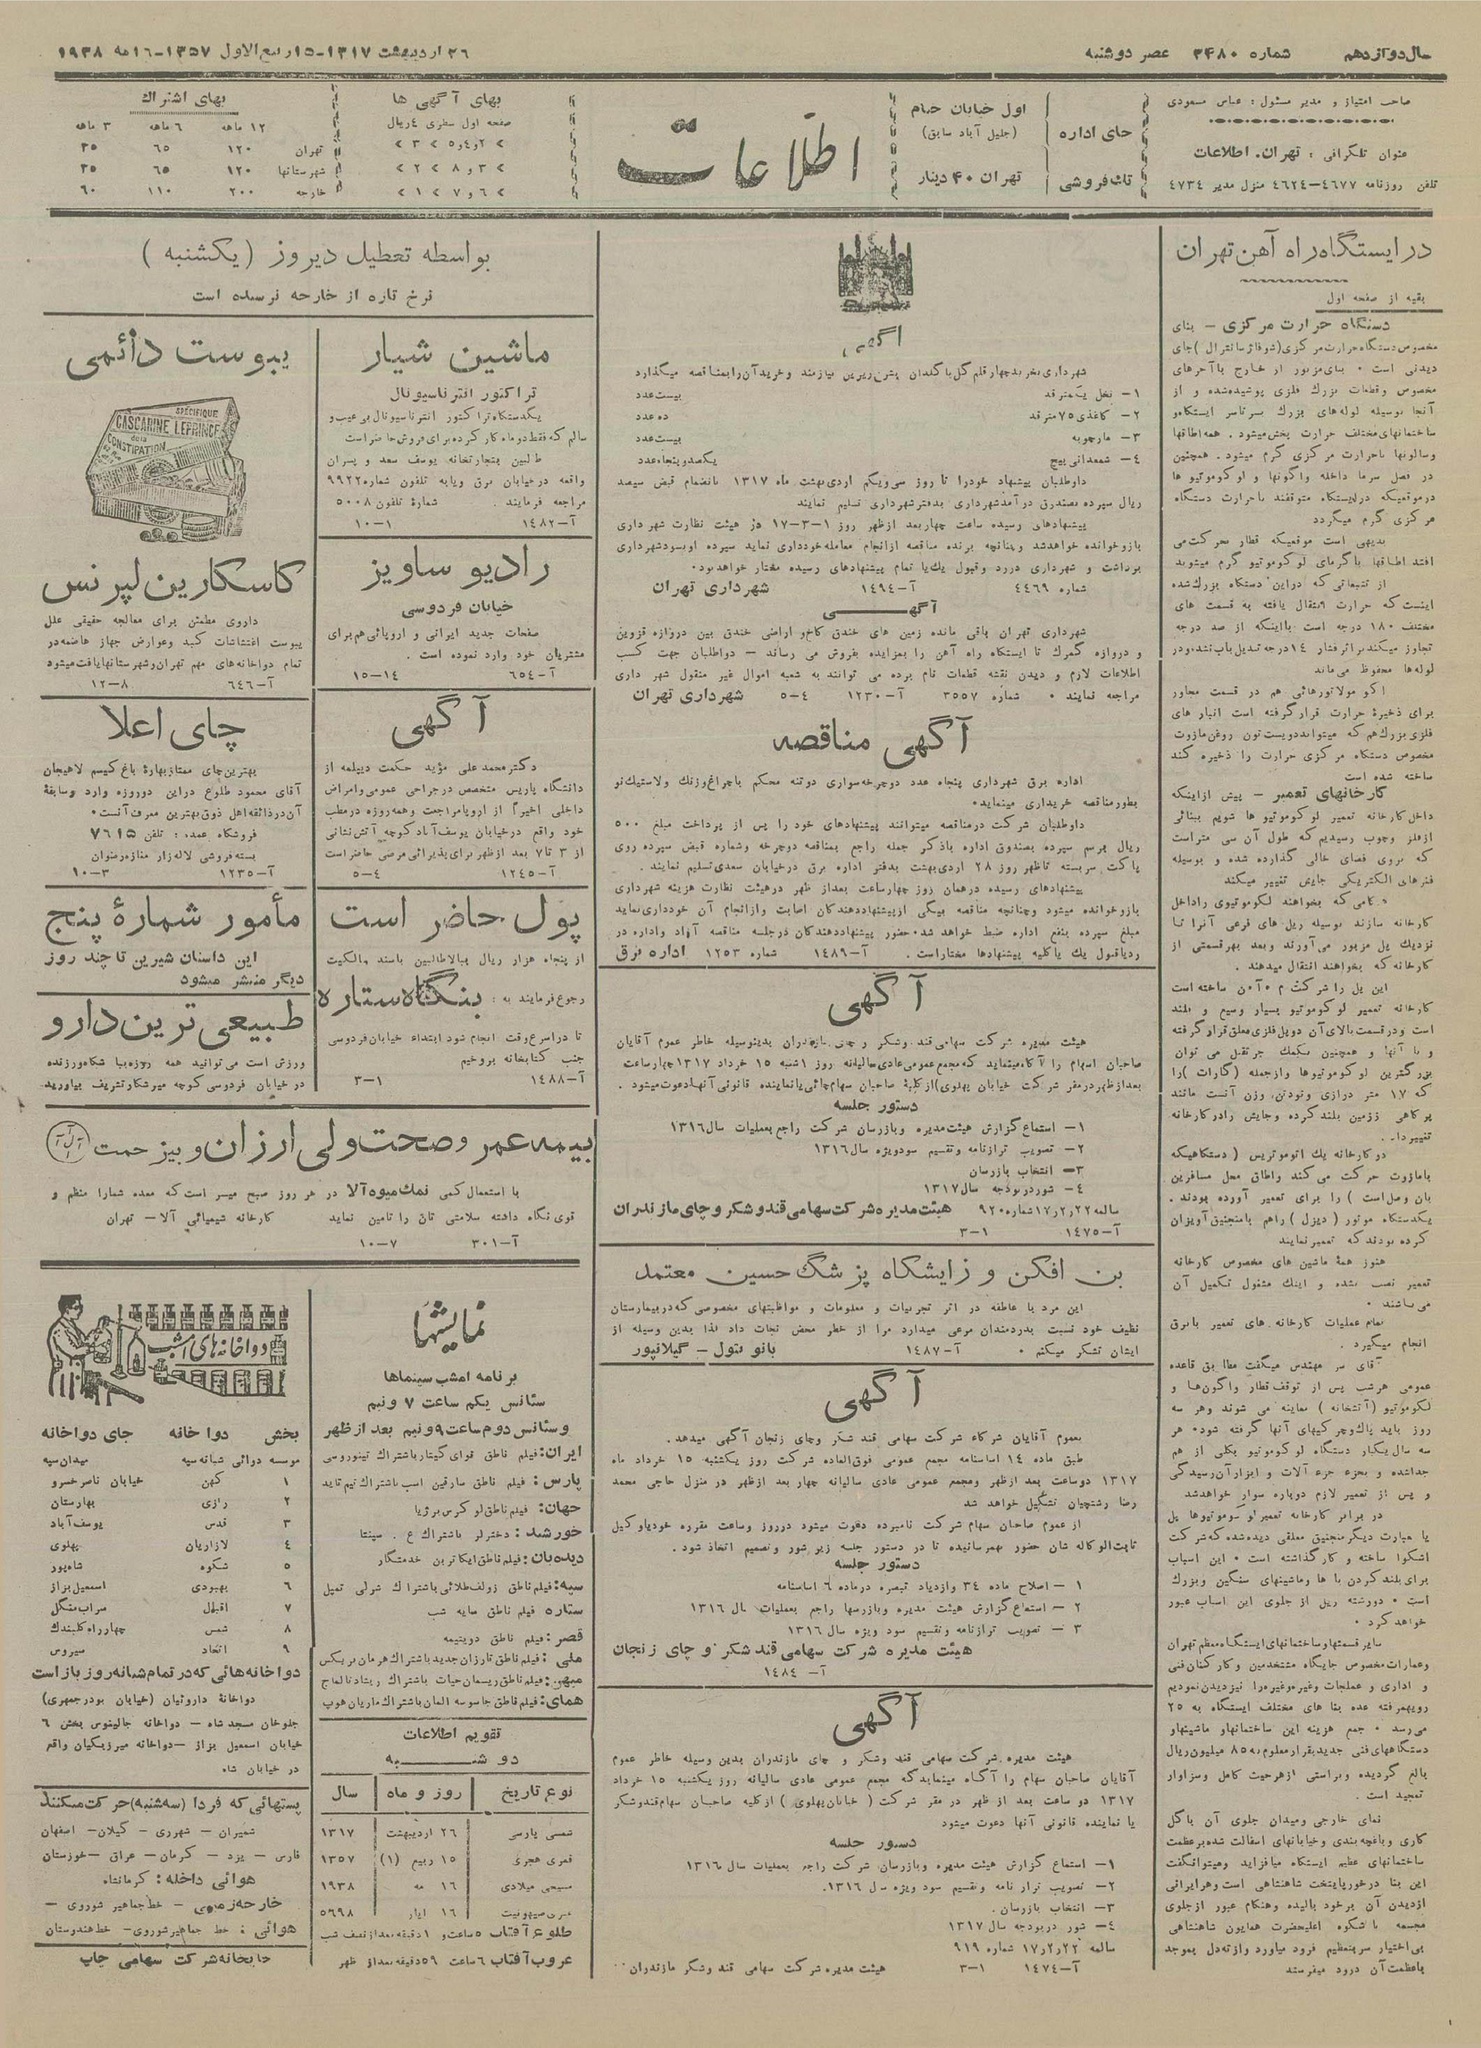 سال دوازدهم شماره ۳۴۸۰ عصر دوشنبه
۲۶ اردیبهشت ۱۳۱۷-۱۵ ربیع الاول ۱۳۵۷-۱۶ مه ۱۹۳۸
صاحب امتیاز و مدیر مسئول: عباس مسعودی
عنوان تلگرافی: تهران. اطلاعات
تلفن روزنامه ۴۶۷۷-۴۶۲۴ منزل مدیر ۴۷۳۴
جای اداره
اول خیابان خیام
(جلیل آباد سابق)
تک فروشی
تهران ۴۰ دینار
اطلاعات
بهای آگهی ها
صفحه اول سطری ۴ ریال
بهای اشتراک
۱۲ ماهه ۶ ماهه ۳ ماهه
تهران ۱۲۰ ۶۵ ۳۵
شهرستانها ۱۲۰ ۶۵ ۳۵
خارجه ۲۰۰ ۱۱۰ ۶۰
در ایستگاه راه آهن تهران
بقیه از صفحه اول
دستگاه حرارت مرکزی - بنای
مخصوص دستگاه حرارت مرکزی (شوفاژ سانترال) جای
دیدنی است • بنای مزبور از خارج با آجرهای
مخصوص و قطعات بزرگ فلزی پوشیده شده و از
آنجا بوسیله لوله های بزرگ سرتاسر ایستگاه و
ساختمانهای مختلف حرارت پخش میشود. همه اطاقها
وسالونها با حرارت مرکزی گرم میشود. همچنین
در فصل سرما داخله واگونها و لوکوموتیو ها
درموقعیکه در ایستگاه متوقفند با حرارت دستگاه
مرکزی گرم میگردد
بدیهی است موقعیکه قطار بحرکت می
افتد اطاقها با گرمای لوکوموتیو گرم میشوند
اینست که حرارت انتقال یافته به قسمت های
مختلف ۱۸۰ درجه است با اینکه از صد درجه
تجاوز میکند بر اثر فشار ۱۴ درجه تبدیل بآب نشده و در
لوله ها محفوظ می ماند
اکومولاتورهائی هم در قسمت مجاور
برای ذخیرهٔ حرارت قرار گرفته است انبار های
فلزی بزرگ هم که میتواند دویست تون روغن مازوت
مخصوص دستگاه مرکزی حرارت را ذخیره کند
ساخته شده است
کارخانهای تعمیر - پیش از اینکه
داخل کارخانه تعمیر لوکوموتیو ها شویم ببنائی
از فلز وچوب رسیدیم که طول آن سی متر است
که بروی فضای خالی گذارده شده و بوسیله
فنرهای الکتریکی جایش تغییر میکند
کارخانه سازند بوسیله ریل های فرعی آنرا تا
نزدیک پل مزبور می آورند و بعد بهر قسمتی از
کارخانه که بخواهند انتقال میدهند.
کارخانه تعمیر لوکوموتیو بسیار وسیع و بلند
است ودر قسمت بالای آن دو پل فلزی معلق قرار گرفته
و با آنها و همچنین بکمک جرثقیل می توان
بزرگترین لوکوموتیوها وازجمله (گارات) را
که ۱۷ متر درازی و نود تن وزن آنست مانند
پرکاهی ززمین بلند کرده و جایش را در کارخانه
دو کارخانه یک اتوموتریس (دستگاهیکه
با مازوت حرکت می کند و اطاق محل مسافرین
بان وصل است) را برای تعمیر آورده بودند.
یکدستگاه موتور (دیزل) راهم با منجنیق آویزان
کرده بودند که تعمیر نمایند
هنوز همهٔ ماشین های مخصوص کارخانه
تعمیر نصب نشده و اینک مشغول تکمیل آن
می باشند •
تمام عملیات کارخانه های تعمیر با برق
انجام میگیرد.
آقای سر مهندس میگفت مطابق قاعده
عمومی هر شب پس از توقف قطار واگون ها و
لکوموتیو (آتشخانه) معاینه می شوند وهر سه
روز باید پاک وچرکیهای آنها گرفته شود • هر
سه سال یکبار دستگاه لوکوموتیو بکلی از هم
جدا شده و بجزء جزء آلات و ابزار آن رسیدگی
و پس از تعمیر لازم دوباره سوار خواهد شد
یا عبارت دیگر منجنیق معلقی دیده شد که شرکت
اشکودا ساخته و کار گذاشته است • این اسباب
برای بلند کردن با ها و ماشینهای سنگین و بزرگ
است • دو رشته ریل از جلوی این اسباب عبور
خواهد کرد •
سایر قسمتها و ساختمانهای ایستگاه معظم تهران
وعمارات مخصوص جایگاه مستخدمین و کارکنان فنی
و اداری و عملجات وغیره وغیره را نیز دیدن نمودیم
رویهمرفته عده بنا های مختلف ایستگاه به ۲۵
می رسد • جمع هزینه این ساختمانها و ماشینها و
دستگاههای فنی جدید بقرار معلوم به ۸۵ میلیون ریال
بالغ گردیده و براستی از هر حیث کامل و سزاوار
تمجید است.
نمای خارجی و میدان جلوی آن با گل
کاری و باغچه بندی و خیابانهای اسفالت شده بر عظمت
ساختمانهای عظیم ایستگاه میافزاید و میتوان گفت
این بنا درخور پایتخت شاهنشاهی است و هر ایرانی
از دیدن آن بر خود بالیده و هنگام عبور از جلوی
مجسمه با شکوه اعلیحضرت همایون شاهنشاهی
بی اختیار سر تعظیم فرود میاورد و از ته دل بموجد
باعظمت آن درود میفرستد
آگهی
شهرداری بخرید چهار قلم گل با گلدان بشرح زیرین نیازمند و خرید آن را بمناقصه میگذارد
۱- نخل یک متر قد بیست عدد
۲- کاغذی ۷۵ متر قد ده عدد
۳- مارچوبه بیست عدد
۴- شمعدانی پیچ یکصد و پنجاه عدد
داوطلبان پیشنهاد خود را تا روز سی ویکم اردی بهشت ماه ۱۳۱۷ بانضمام قبض سیصد
ریال سپرده بصندوق درآمد شهرداری بدفتر شهرداری تسلیم نمایند
پیشنهادهای رسیده ساعت چهار بعد از ظهر روز ۱-۳-۱۷ در هیئت نظارت شهرداری
باز و خوانده خواهد شد و چنانچه برنده مناقصه از انجام معامله خودداری نماید سپرده او بسود شهرداری
برداشت و شهرداری در رد وقبول یک یا تمام پیشنهادهای رسیده مختار خواهد بود•
شماره ۴۴۶۹ آ-۱۴۹۴ شهرداری تهران
آگهی
شهرداری تهران باقی مانده زمین های خندق کاخ و اراضی خندق بین دروازه قزوین
و دروازه گمرک تا ایستگاه راه آهن را بمزایده بفروش می رساند - دواطلبان جهت کسب
اطلاعات لازم و دیدن نقشه قطعات نام برده می توانند به شعبه اموال غیر منقول شهر داری
مراجعه نمایند • شماره ۳۵۵۷ آ-۱۲۳۰ ۴-۵ شهرداری تهران
آگهی مناقصه
اداره برق شهرداری پنجاه عدد دوچرخه سواری دوتنه محکم با چراغ وزنگ و لاستیک نو
بطور مناقصه خریداری مینماید•
داوطلبان شرکت در مناقصه میتوانند پیشنهادهای خود را پس از پرداخت مبلغ ۵۰۰
ریال برسم سپرده بصندوق اداره با ذکر جمله راجع بمناقصه دوچرخه و شماره قبض سپرده روی
پاکت سربسته تا ظهر روز ۲۸ اردی بهشت بدفتر اداره برق در خیابان سعدی تسلیم نمایند.
پیشنهادهای رسیده در همان روز چهار ساعت بعد از ظهر در هیئت نظارت هزینه شهرداری
باز و خوانده میشود و چنانچه مناقصه بیکی از پیشنهاد دهندگان اصابت و از انجام آن خودداری نماید
مبلغ سپرده بنفع اداره ضبط خواهد شد•حضور پیشنهاد دهندگان در جلسه مناقصه آزاد و اداره در
رد یا قبول یک یا کلیه پیشنهادها مختار است. آ-۱۴۸۹ شماره ۱۲۵۳ اداره برق
آگهی
هیئت مدیره شرکت سهامی قند و شکر و چای مازندران بدینوسیله خاطر عموم آقایان
صاحبان اسهام را آگاه مینماید که مجمع عمومی عادی سالیانه روز ۱شنبه ۱۵ خرداد ۱۳۱۷ چهار ساعت
بعد از ظهر در مقر شرکت خیابان پهلوی) از کلیهٔ صاحبان سهام چائی یا نماینده قانونی آنها دعوت میشود.
دستور جلسه
۱- استماع گزارش هیئت مدیره و بازرسان شرکت راجع بعملیات سال ۱۳۱۶
۲- تصویب ترازنامه و تقسیم سود ویژه سال ۱۳۱۶
۳- انتخاب بازرسان
۴- شور در بودجه سال ۱۳۱۷
ساله ۱۷/۲/۲۲ شماره ۹۲۰ هیئت مدیره شرکت سهامی قند و شکر و چای مازندران
آ-۱۴۷۵ ۱-۳
بن افکن و زایشگاه پزشک حسین معتمد
این مرد با عاطفه در اثر تجربیات و معلومات و مواظبتهای مخصوصی که در بیمارستان
نظیف خود نسبت بدردمندان مرعی میدارد مرا از خطر محض نجات داد لذا بدین وسیله از
ایشان تشکر میکنم • آ-۱۴۸۷ بانو بتول - گیلانپور
آگهی
بعموم آقایان شرکاء شرکت سهامی قند شکر و چای زنجان آگهی میدهد.
طبق ماده ۱۴ اساسنامه مجمع عمومی فوق العاده شرکت روز یکشنبه ۱۵ خرداد ماه
۱۳۱۷ دو ساعت بعد از ظهر و مجمع عمومی عادی سالیانه چهار بعد از ظهر در منزل حاجی محمد
رضا رشتچیان تشکیل خواهد شد
از عموم صاحبان سهام شرکت نامبرده دعوت میشود در روز وساعت مقرره خود یا وکیل
ثابت الوکاله شان حضور بهمرسانیده تا در دستور جلسه زیر شور و تصمیم اتخاذ شود.
دستور جلسه
۱ - اصلاح ماده ۳۴ و ازدیاد تبصره در ماده ۶ اساسنامه
۲ - استماع گزارش هیئت مدیره و بازرسها راجع بعملیات سال ۱۳۱۶
۳ - تصویب ترازنامه و تقسیم سود ویژه سال ۱۳۱۶
هیئت مدیره شرکت سهامی قند شکر و چای زنجان
آ- ۱۴۸۴
آگهی
هیئت مدیره شرکت سهامی قند وشکر و چای مازندران بدین وسیله خاطر عموم
آقایان صاحبان سهام را آگاه مینماید که مجمع عمومی عادی سالیانه روز یکشنبه ۱۵ خرداد
۱۳۱۷ دو ساعت بعد از ظهر در مقر شرکت (خیابان پهلوی) از کلیه صاحبان سهام قند و شکر
یا نماینده قانونی آنها دعوت میشود
دستور جلسه
۱- استماع گزارش هیئت مدیره و بازرسان شرکت راجع بعملیات سال ۱۳۱۶
۲- تصویب ترازنامه و تقسیم سود ویژه سال ۱۳۱۶.
۳- انتخاب بازرسان.
۴- شور در بودجه سال ۱۳۱۷
ساله ۱۷/۲/۲۲ شماره ۹۱۹
آ-۱۴۷۴ ۱-۳ هیئت مدیره شرکت سهامی قند وشکر مازندران
بواسطه تعطیل دیروز (یکشنبه)
نرخ تازه از خارجه نرسیده است
ماشین شیار
تراکتور انترناسیونال
یکدستگاه تراکتور انترناسیونال بی عیب و
سالم که فقط دو ماه کار کرده برای فروش حاضر است
طالبین بتجارتخانه یوسف سعد و پسران
واقعه در خیابان برق و یا به تلفون شماره ۹۹۲۲
مراجعه فرمایند. شمارهٔ تلفون ۵۰۰۸
آ-۱۴۸۲ ۱-۱۰
رادیو ساویز
خیابان فردوسی
صفحات جدید ایرانی و اروپائی هم برای
مشتریان خود وارد نموده است.
آ-۶۵۴ ۱۴-۱۵
آگهی
دکتر محمد علی مؤید حکمت دیپلمه از
دانشگاه پاریس متخصص در جراحی عمومی و امراض
داخلی اخیراً از اروپا مراجعت و همه روزه در مطب
خود واقع در خیابان یوسف آباد کوچه آتش نشانی
از ۳ تا ۷ بعد از ظهر برای پذیرائی مرضی حاضر است
آ-۱۲۴۵ ۴-۵
پول حاضر است
از پنجاه هزار ریال ببالا طالبین باسند مالکیت
رجوع فرمایند به: بنگاه ستاره
تا در اسرع وقت انجام شود ابتداء خیابان فردوسی
جنب کتابخانه بروخیم
آ-۱۴۸۸ ۱-۳
یبوست دائمی
SPÉCIFIQUE
CASCARINE LEPRINCE
de la
CONSTIPATION
کاسکارین لپرنس
داروی مطمئن برای معالجه حقیقی علل
یبوست اغتشاشات کبد و عوارض جهاز هاضمه در
تمام دواخانه های مهم تهران و شهرستانها یافت میشود
آ-۶۴۶ ۸-۱۲
چای اعلا
بهترین چای ممتاز بهارهٔ باغ کیسم لاهیجان
آقای محمود طلوع در این دو روزه وارد و سابقهٔ
آن در ذائقه اهل ذوق بهترین معرف آنست•
فروشگاه عمده: تلفن ۷۶۱۵
بسته فروشی لاله زار مغازه رضوان
آ-۱۲۳۵ ۳-۱۰
مأمور شمارهٔ پنج
این داستان شیرین تا چند روز
دیگر منتشر میشود
طبیعی ترین دارو
ورزش است می توانید همه روزه بباشگاه ورزنده
در خیابان فردوسی کوچه میرشکار تشریف بیاورید
بیمه عمر و صحت ولی ارزان و بیزحمت
با استعمال کمی نمک میوه آلا در هر روز صبح میسر است که معده شما را منظم و
قوی نگاه داشته سلامتی تان را تامین نماید کارخانه شیمیائی آلا - تهران
آ-۳۰۱ ۷-۱۰
نمایشها
برنامه امشب سینماها
سئانس یکم ساعت ۷ و نیم
وسئانس دوم ساعت ۹ و نیم بعد از ظهر
ایران: فیلم ناطق قوای گیتار باشتراک تینوروسی
پارس: فیلم ناطق سارقین اسب باشتراک تیم تاید
جهان: فیلم ناطق لوکرس برژیا
خورشید: دختر لر باشتراک ع. سپنتا
دیده بان: فیلم ناطق ایکاترین خدمتگار
سپه: فیلم ناطق زولف طلائی باشتراک شرلی تمپل
ستاره فیلم ناطق سایه شب
قصر: فیلم ناطق دو یتیمه
ملی: فیلم ناطق تارزان جدید باشتراک هرمان بریکس
میهن: فیلم ناطق ریسمان حیات باشتراک ریتا دناماج
همای: فیلم ناطق جاسوسه آلمان باشتراک ماریان هوپ
تقویم اطلاعات
دوشنبه
نوع تاریخ روز و ماه سال
شمسی پارسی ۲۶ اردیبهشت ۱۳۱۷
قمری هجری ۱۵ ربیع (۱) ۱۳۵۷
مسیحی میلادی ۱۶ مه ۱۹۳۸
۱۶ ایار ۵۶۹۸
طلوع آفتاب ۵ ساعت و ۱ دقیقه بعد از نصف شب
غروب آفتاب ۶ ساعت ۵۹ دقیقه بعد از ظهر
دواخانه های امشب
بخش دواخانه جای دواخانه
موسسه دوائی شبانه سپه میدان سپه
۱ کهن خیابان ناصر خسرو
۲ رازی بهارستان
۳ قدس یوسف آباد
۴ لازاریان پهلوی
۵ شکوه شاهپور
۶ بهبودی اسمعیل بزاز
۷ اقبال سرابسنگل
۸ شمس چهارراه گلبندک
۹ اتحاد سیروس
دواخانه هائی که در تمام شبانه روز باز است
دواخانهٔ داروئیان (خیابان بوذرجمهری)
جلوخان مسجد شاه - دواخانه جالینوس بخش ۶
خیابان اسمعیل بزاز - دواخانه میرزیگیان واقع
در خیابان شاه
پستهائی که فردا (سه شنبه) حرکت میکنند
شمیران - شهرری - گیلان - اصفهان
فارس - یزد - کرمان - عراق - خوزستان
هوائی داخله: کرمانشاه
خارجه زمینی - خط جماهیر شوروی -
هوائی: خط جماهیر شوروی - خط هندوستان
چاپخانه شرکت سهامی چاپ